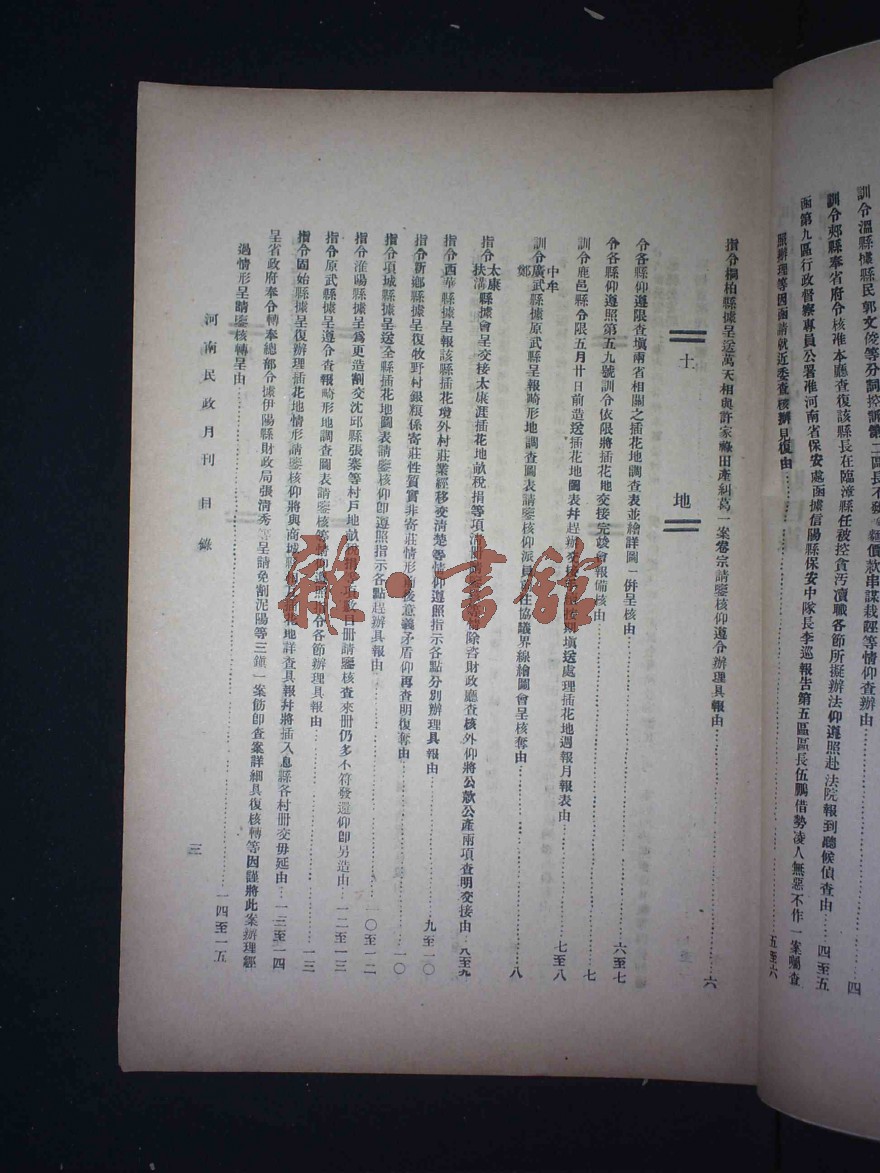 訓令溫縣據縣民郭文俊等分詞控訴第二區長不發 價款串謀栽誣等情仰查辦由……四
訓令郟縣奉省府令核准本廳查復該縣長在臨漳縣任被控貪汚瀆職各節所擬辦法仰遵照赴法院報到聽候偵查由……四至五
函第九區行政督察專員公署准河南省保安處函據信陽縣保安中隊長李巡報告第五區區長伍鵬借勢凌人無惡不作一案囑查
照辦理等因函請就近委查核辦見復由……五至六
指令桐柏縣據呈送萬天相與許家祿田產糾葛一案卷宗請鑒核仰遵令辦理具報由……六
土地
令各縣仰遵限查塡兩省相關之插花地調查表並繪詳圖一併呈核由……六至七
令各縣仰遵照第五九號訓令依限將插花地交接完竣會報備核由……七
訓令鹿邑縣令限五月廿日前造送插花地圖表幷趕辦交接 按期塡送處理插花地週報月報表由……七至八
訓令中牟廣武鄭縣據原武縣呈報畸形地調查圖表請鑒核仰派員 往協議界線繪圖會呈核奪由……八
指令太康扶溝縣據會呈交接太康涯插花地畝稅捐等項清冊請 除咨財政廳查核外仰將公款公產兩項查明交接由……八至九
指令西華縣據呈報該縣插花境外村莊業經移交清楚等情仰遵照指示各點分別辦理具報由……九至一〇
指令新鄉縣據呈復牧野村銀糧係寄莊性質實非寄莊情形前後意義矛盾仰再查明復奪由……一〇
指令項城縣據呈送全縣插花地圖表請鑒核仰卽遵照指示各點趕辦具報由……一〇至一二
指令淮陽縣據呈爲更造割交沈邱縣張寨等村戶地畝稅捐 項數目册請鑒核查來册仍多不符發還仰卽另造由……一二至一三
指令原武縣據呈遵令查報畸形地調查圖表請鑒核等情仰遵照指令各節辦理具報由……一三
指令固始縣據呈復辦理插花地情形請鑒核仰將與商城縣 插花地詳查具報幷將插入息縣各村册交毋延由……一三至一四
呈省政府奉令轉奉總部令據伊陽縣財政局張淸秀等呈請免割泥陽等三鎭一案飭卽查案詳細具復核轉等因謹將此案辦理經
過情形呈請鑒核轉呈由……一四至一五
河南民政月刊 目錄
三
雜·書館